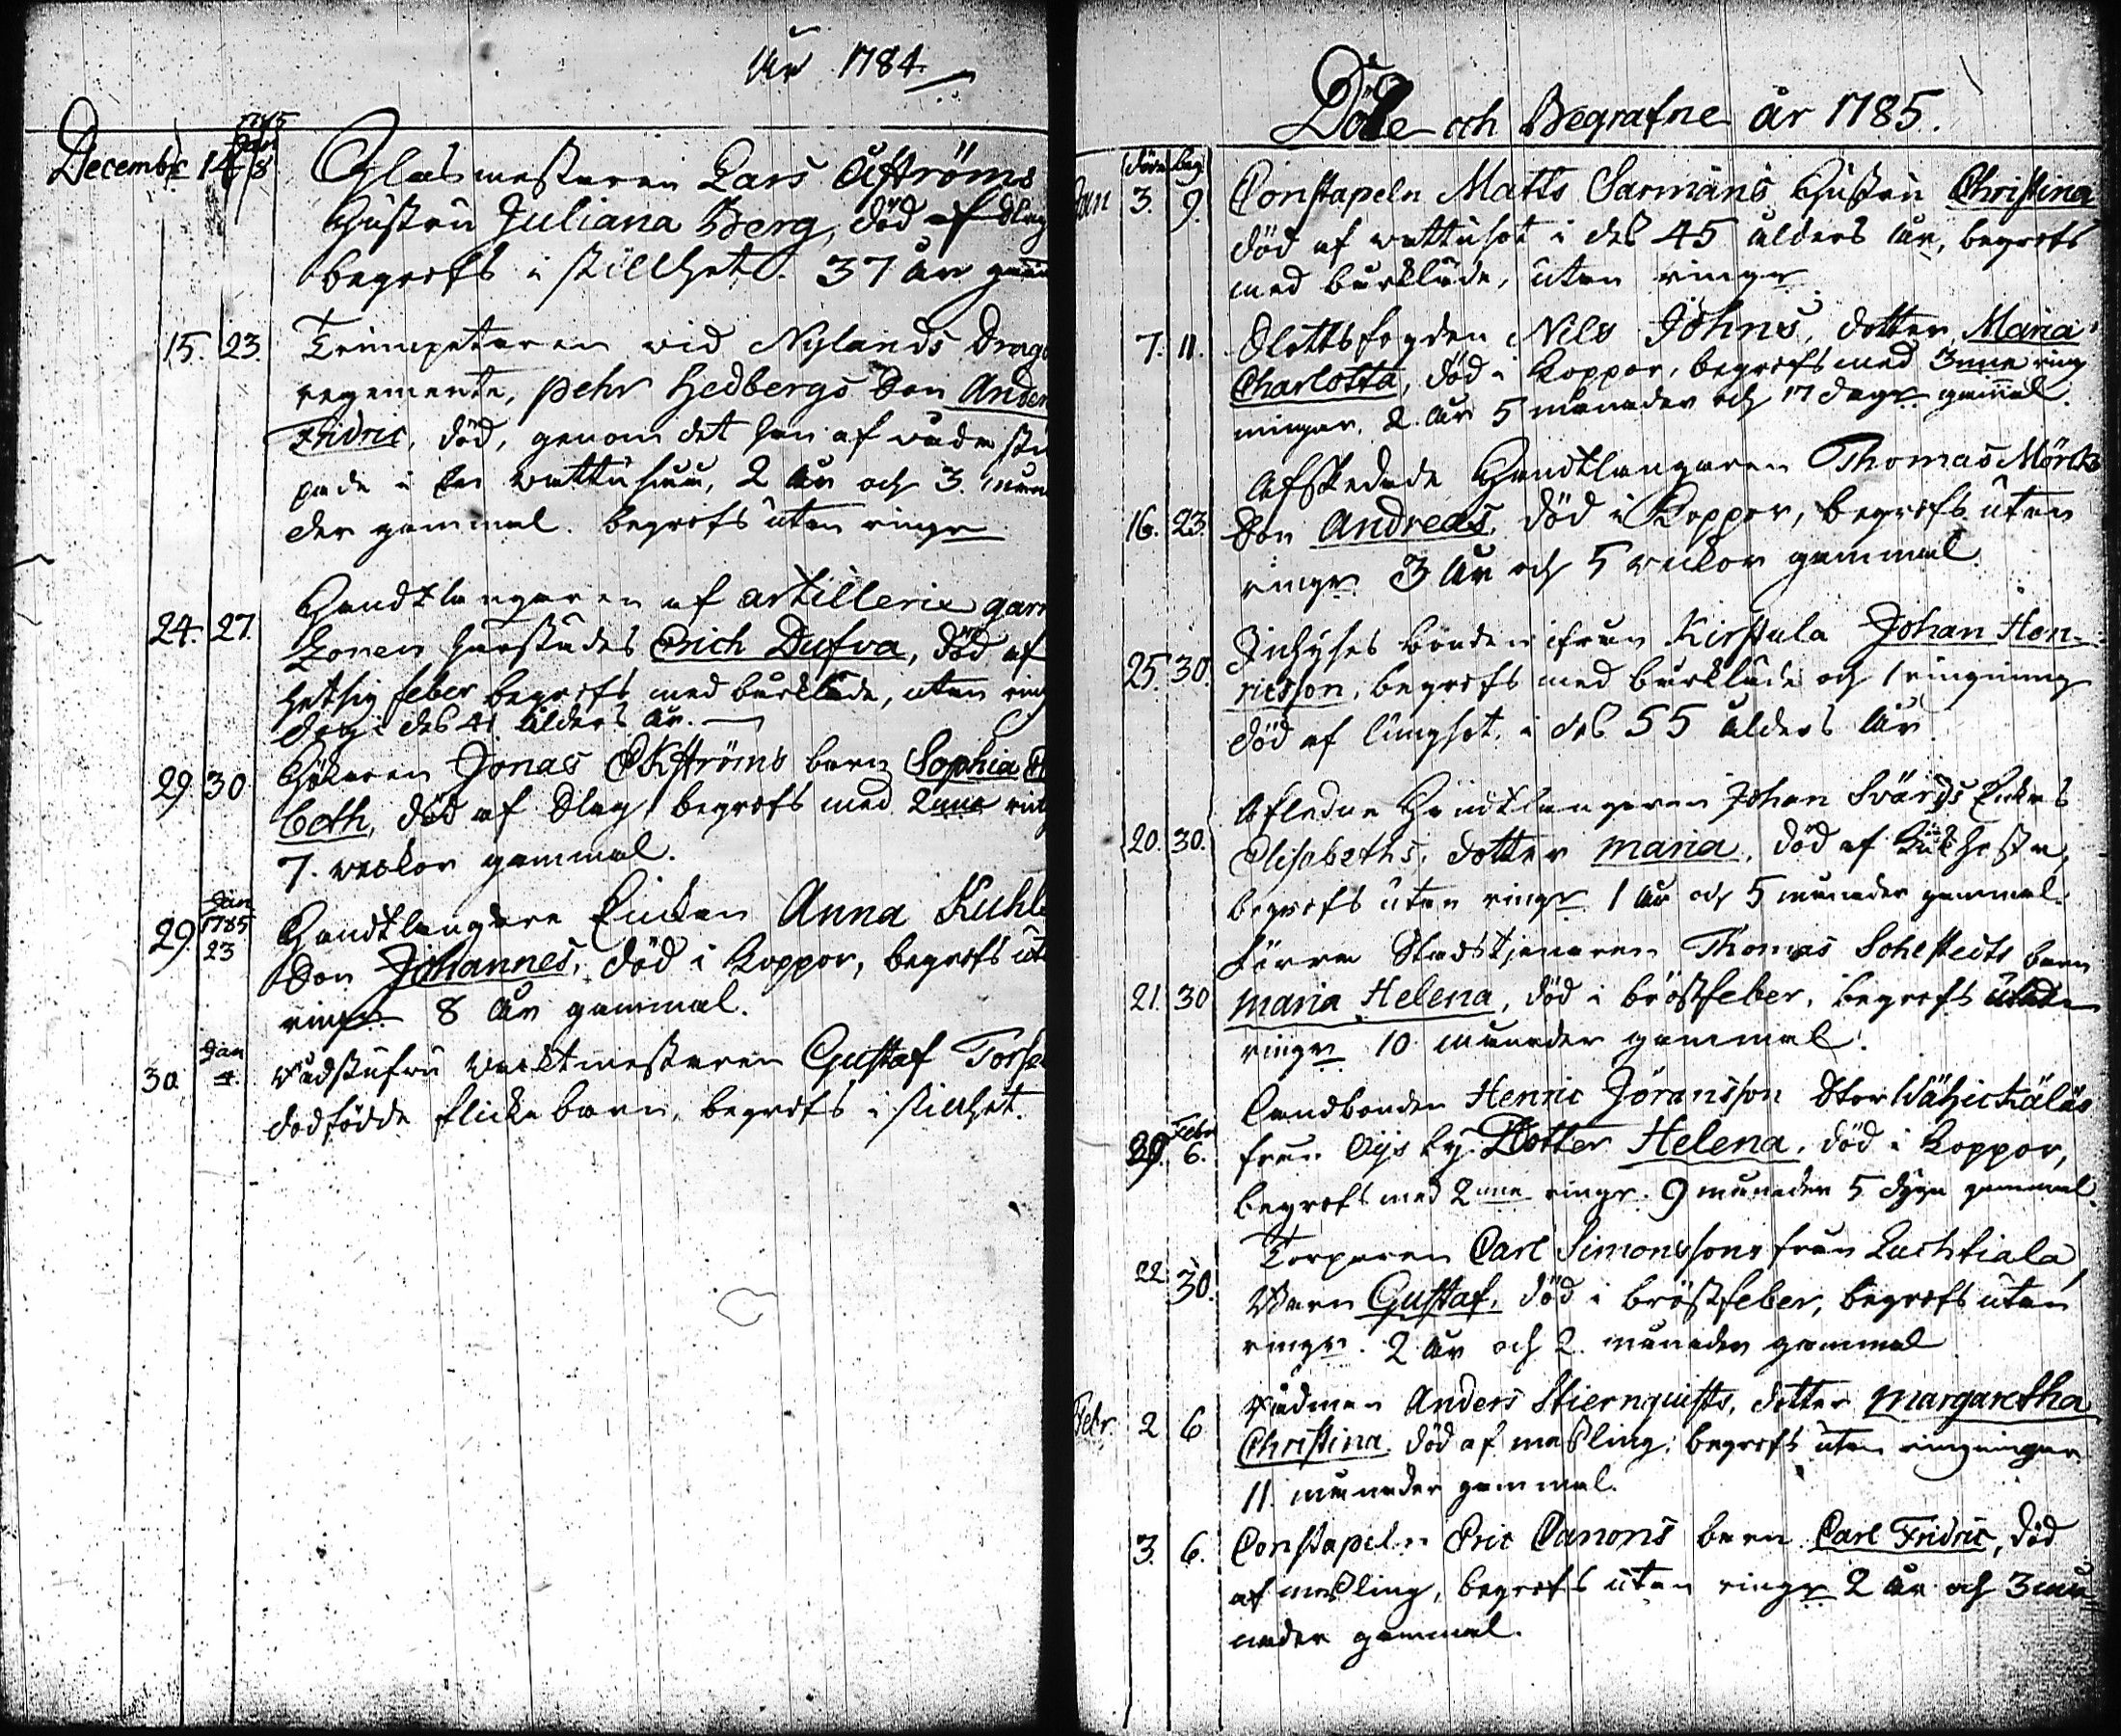 År 1784.
1785
Jan
Decembr 14 8 Glasmestaren Lars Åströms
Hustru Juliana Berg, död af slag
begrofs i stillhet. 37 år gam
15. 23. Trumpetaren vid Nylands Drag
regemente, Pehr Hedbergs Son Ander
Fridric, död, genom det han af våda stu
pade i en vattu, 2 år och 3. måna
der gammal. begrofs utan ringn
24. 27. Handtlangaren af artillerie garn
Erich Dufva, död af
hetsig feber begrofs med bårkläde, utan ring
i des 41 ålders år.
29. 30 Hökaren Jonas Ekströms barn Sophia
beth, död af Slag, begrofs med 2nne ring
7. veckor gammal.
Jan
1785
29. 23 Handtlangare Enkan Anna Kuhl
Son Johannes, död i Koppor, begrofs ut
ringn 8 år gammal.
Jan
30. 4. vacktmestaren Gustaf Torse
dödfödde flickebarn, begrofs i stillhet.
Döde och Begrafne år 1785.
döde beg
Jan 3. 9. Constapeln Matts Sarmans Hustru Christina
död af vattusot i des 45 ålders år, begrofs
med bårkläde, utan ringn
7. 11. Slottsfogden Nils Johns, dotter Maria
Charlotta, död i Koppor, begrofs med 3nne ring
ningar, 2 år 5 månader och 17 dagr gammal.
Afskedade Handtlangaren Thomas Mörcks
16. 23. Son Andreas, död i Koppor, begrofs utan
ringn 3 år och 5 vickor gammal.
Inhyses bonden ifrån Kirstula Johan Hen-
25. 30. ricsson, begrofs med bårkläde och 1 ringning
död af lungsot, i des 55 ålders år
Afledne Handtlangaren Johan Svärds Enkas
20. 30. Elisabeths, dotter Maria, död af Kikhosta,
begrofs utan ringn 1 år och 5 månader gammal.
Förra Stadstjenaren Thomas Sohlstedts barn
21. 30 Maria Helena, död i bröstfeber, begrofs utan
ringn 10 månader gammal.
Landbonden Henric Jöransson Stor
Febr
29. 6. från Oijs by Dotter Helena, död i Koppor,
begrofs med 2nne ringn. 9 månader 5 dygn gammal.
Torparen Carl Simonssons från Luchtiala,
22. 30. Barn Gustaf, död i bröstfeber, begrofs utan
ringn. 2 år och 2. månader gammal
Rådman Anders Stiernquists, dotter Margaretha
Febr. 2 6 Christina, död af messling, begrofs utan ringningar
11. månader gammal.
3. 6. Constapeln Eric Canons barn Carl Fridric, död
af messling, begrofs utan ringn 2 år och 3 må
nader gammal.